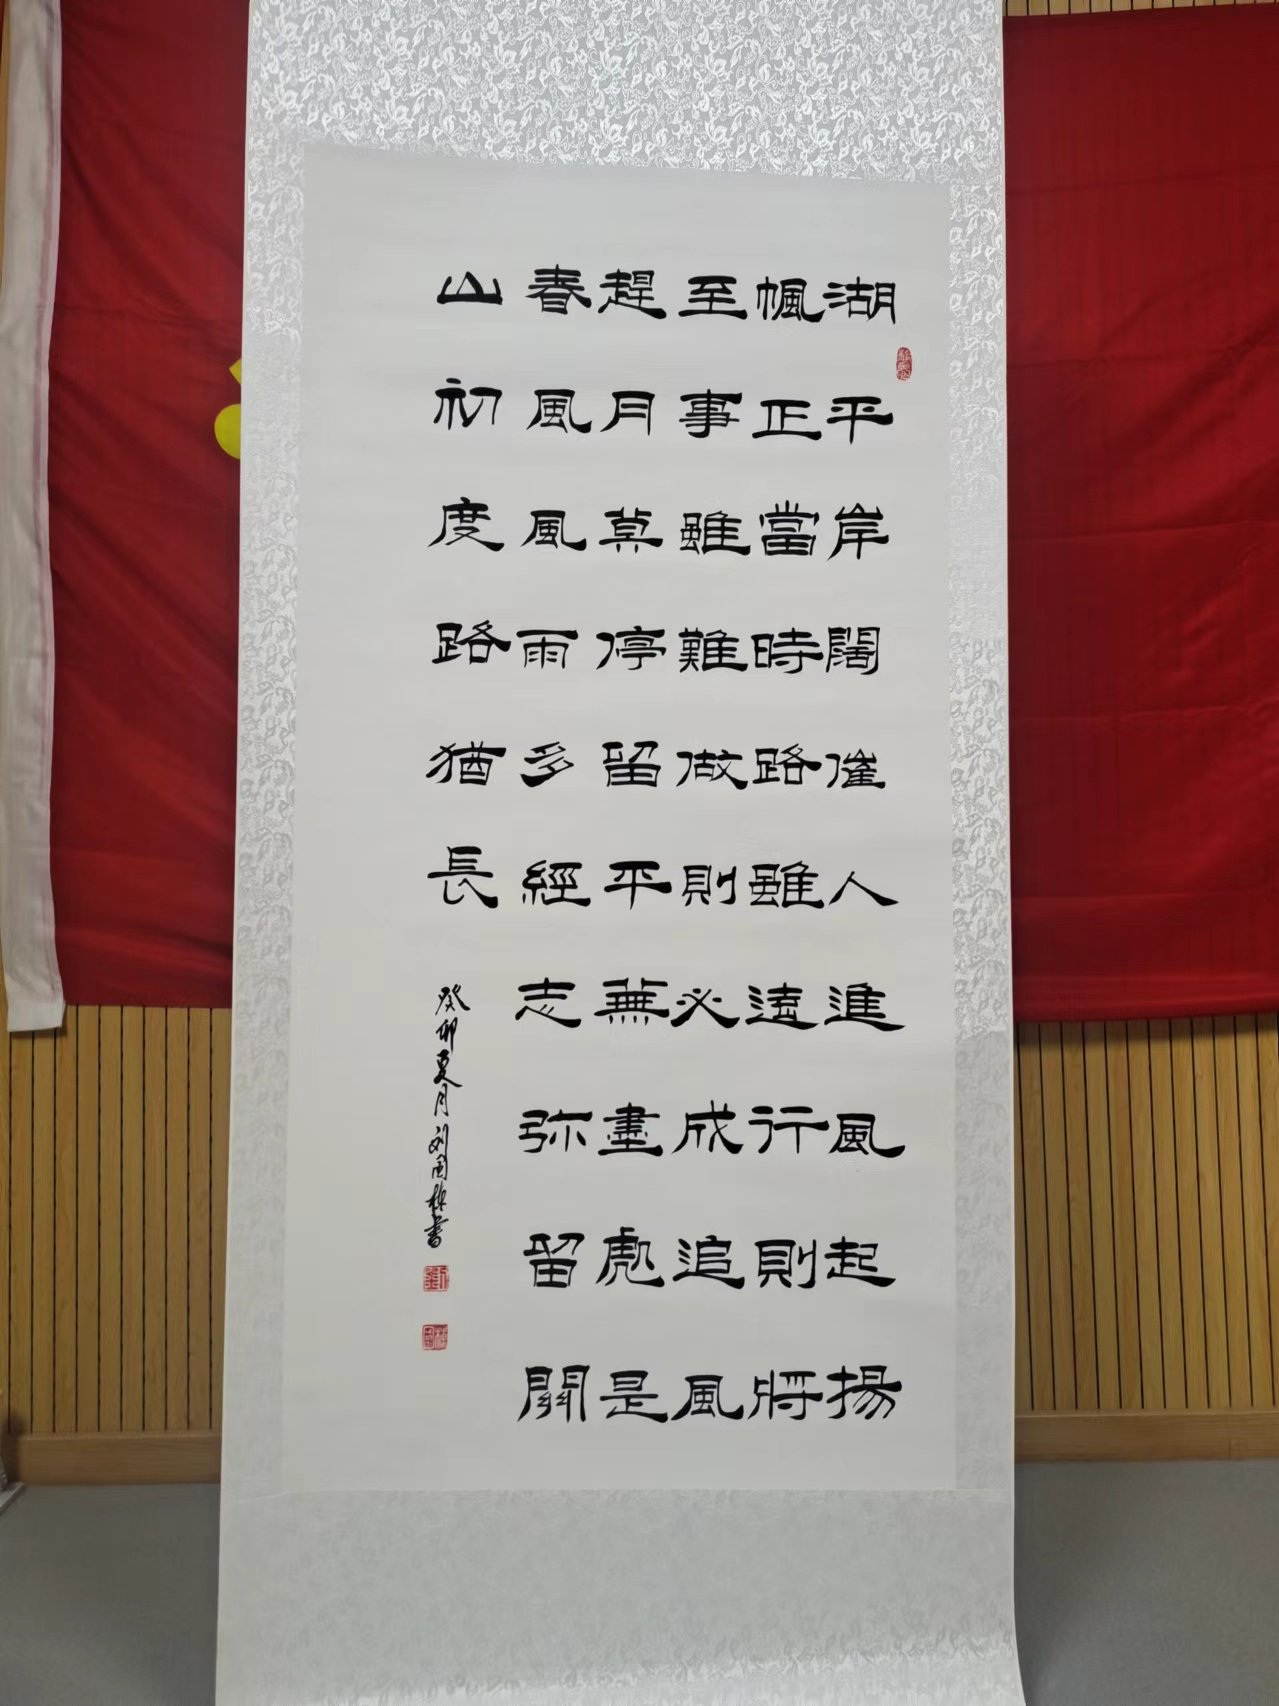 湖平岸闊催人進風起揚
帆正當時路雖遠行則將
至事雖難做則必成追風
趕月莫停留平蕪盡處是
春風風雨多經志弥留關
山初度路猶長
癸卯夏月刘国栋書